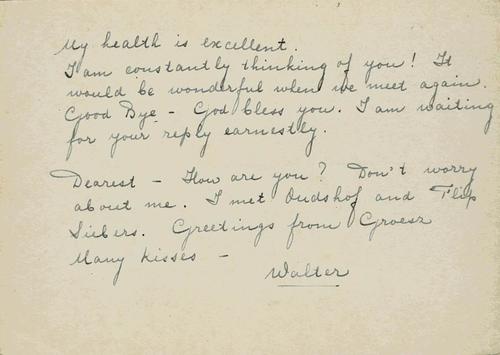 My health is excellent.
I am constantly thinking of you! It
would be wonderful when we meet again.
Good Bye - God bless you. I am waiting
for your reply earnestly.
Dearest - How are you? Don't worry
about me. I met Oudshof and Flip
Siebers. Greetings from Groesz
Many kisses -
Walter